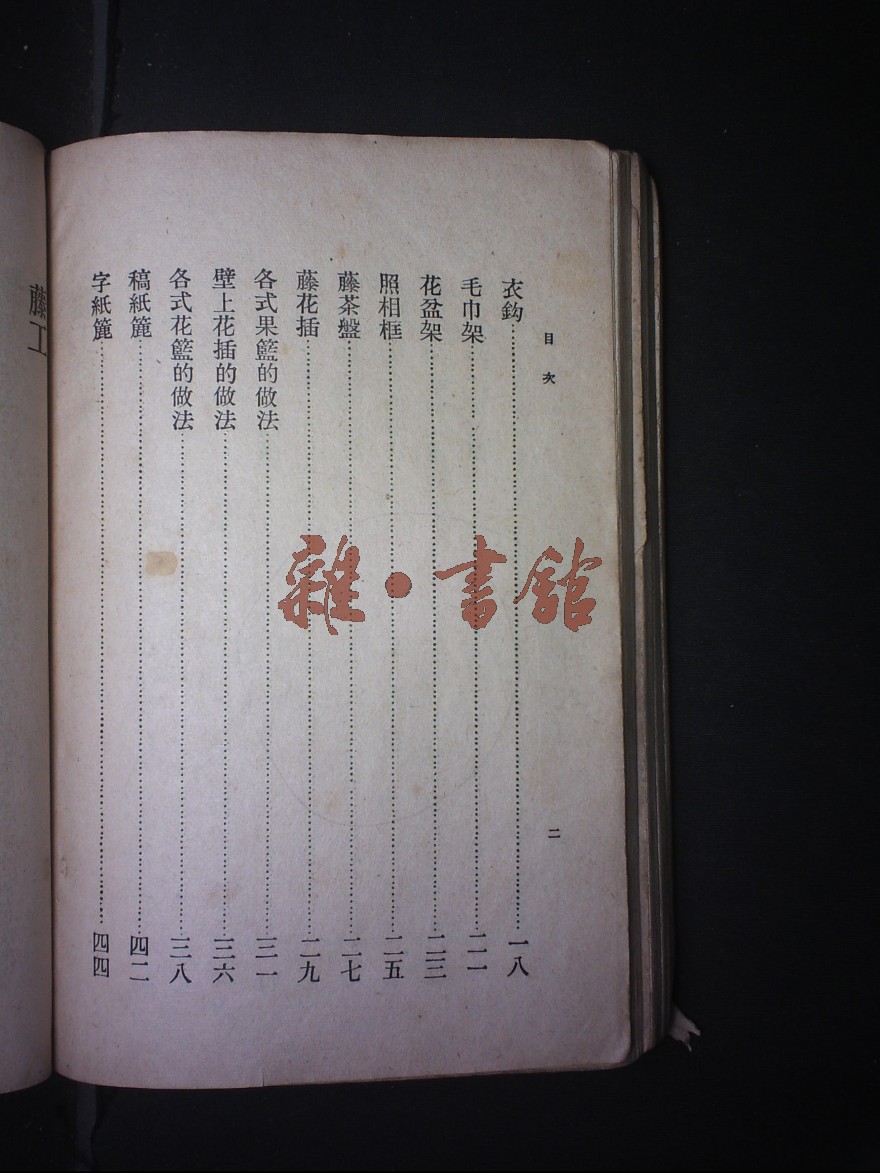 目次
二
衣鈎……一八
毛巾架……二一
花盆架……二三
照相框……二五
藤茶盤……二七
藤花插……二九
各式果籃的做法……三一
壁上花插的做法……三六
各式花籃的做法……三八
稿紙簏……四二
字紙簏……四四
藤工
雜·書館